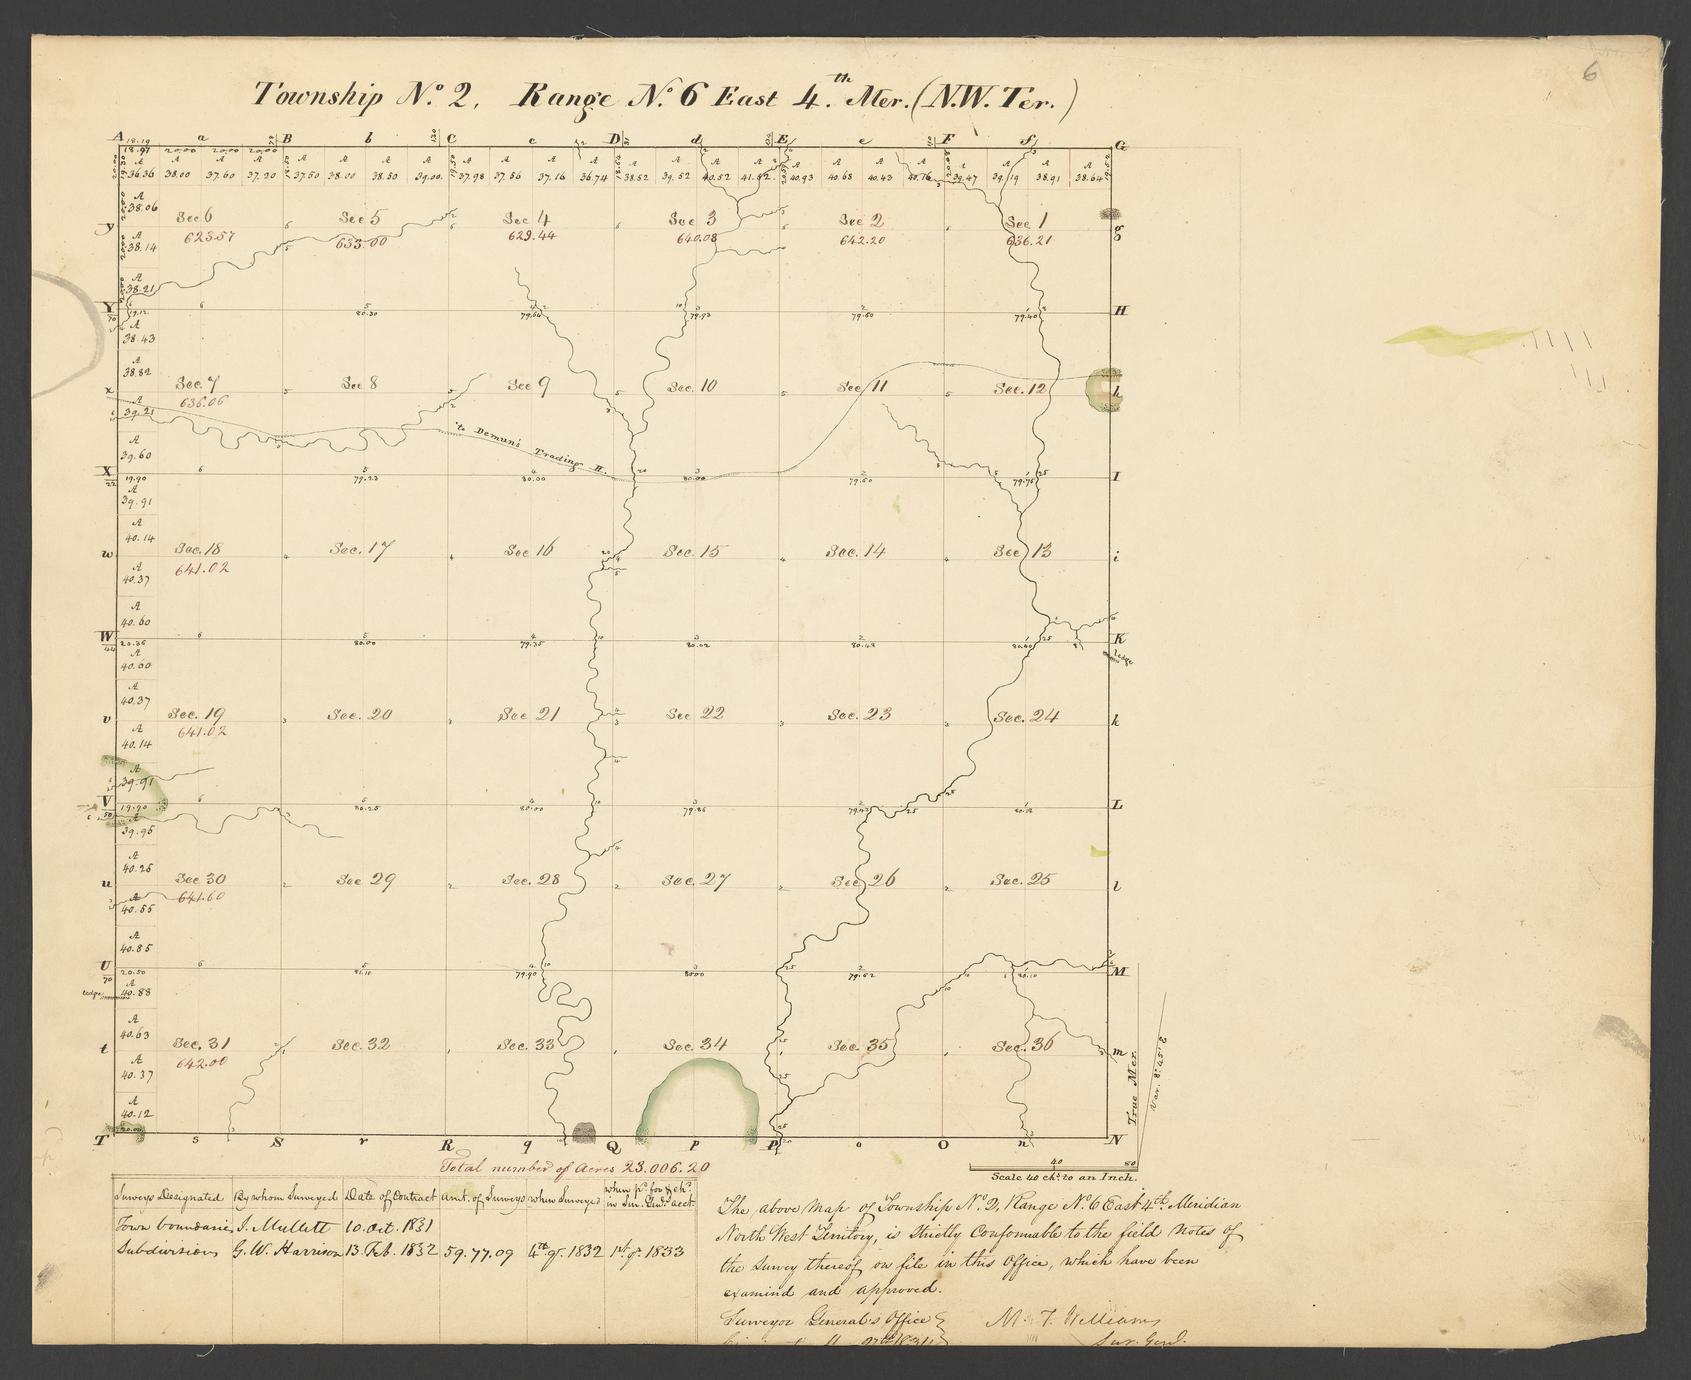 6
Township No. 2, Range No. 6 East 4th. Mer. (N.W. Ter.)
A a B b C c D d E e F f G
18.97 20.00 20.00 20.00
A A A A A A A A A A A A A A A A A A A A A A A A
36.36 38.00 37.60 37.20 37.50 38.00 38.50 39.00 37.98 37.56 37.16 36.74 38.52 39.52 40.52 41.52 40.93 40.68 40.43 40.16 39.47 39.19 38.91 38.64
A
38.06
Sec 6 Sec 5 Sec 4 Sec 3 Sec 2 Sec 1
y 623.57 633.00 629.44 640.08 642.20 636.21 g
A
38.14
A
38.21
Y 6 5 4 3 2 1 H
70 19.12 80.30 79.64 79.92 79.60 79.40
A
38.43
A
38.82
Sec. 7 Sec 8 Sec 9 Sec. 10 Sec 11 Sec. 12
x 636.06 h
A
39.21
to Demun's Trading H.
A
39.60
X 6 5 4 3 2 1 I
22 19.90 79.23 80.00 80.00 79.60 79.75
A
39.91
A
40.14
w Sec. 18 Sec. 17 Sec 16 Sec. 15 Sec. 14 Sec 13 i
641.02
A
40.37
A
40.60
W 6 5 4 3 2 1 K
44 20.36 80.00 79.35 80.02 80.48 80.60
ledge
A
40.60
A
40.37
v Sec. 19 Sec. 20 Sec 21 Sec 22 Sec. 23 Sec. 24 k
641.02
A
40.14
A
39.91
V 6 5 4 3 2 L
50 19.90 80.25 80.00 79.86 79.43 80.18
A
39.95
A
40.25
u Sec 30 Sec 29 Sec. 28 Sec. 27 Sec 26 Sec. 25 l
641.60
A
40.55
A
40.85
U 6 5 4 3 2 M
70 20.50 81.10 79.90 80.00 79.62 80.10
ledge A
40.88
A
40.63
t Sec. 31 Sec. 32 Sec. 33 Sec. 34 Sec. 35 Sec. 36 m
642.00
A
40.37
A
40.12
True Mer.
Var. 8° 45' E
T s S r R q Q p P o O n N
Total number of Acres 23.006.20
40 80
Scale 40 chs. to an Inch.
Surveys Designated By whom Surveyed Date of Contract Amt. of Surveys when Surveyed when pd. for & chd. in Sur. Genls. acct.
Town boundaries J. Mullett 10 Oct. 1831
Subdivisions G. W. Harrison 13. Feb. 1832 59. 77. 09 4th qr. 1832 1st. qr. 1833
The above Map of Township No. 2, Range No. 6 East 4th. Meridian
North West Territory, is Strictly Conformable to the field notes of
the Survey thereof on file in this Office, which have been
examind and approved.
Surveyor General's Office
M. T. Williams
Sur. Genl.